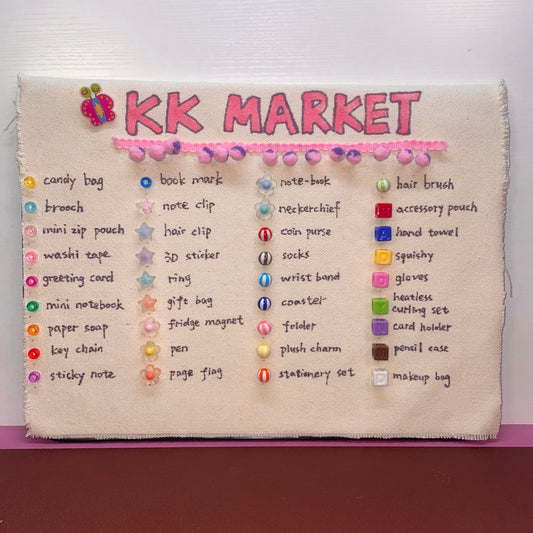 KK MARKET
candy bag
brooch
mini zip pouch
washi tape
greeting card
mini notebook
paper soap
key chain
sticky note
book mark
note clip
hair clip
3D sticker
ring
gift bag
fridge magnet
pen
page flag
note-book
neckerchief
coin purse
socks
wrist band
coaster
folder
plush charm
stationery set
hair brush
accessory pouch
hand towel
squishy
gloves
heatless
curling set
card holder
pencil case
makeup bag